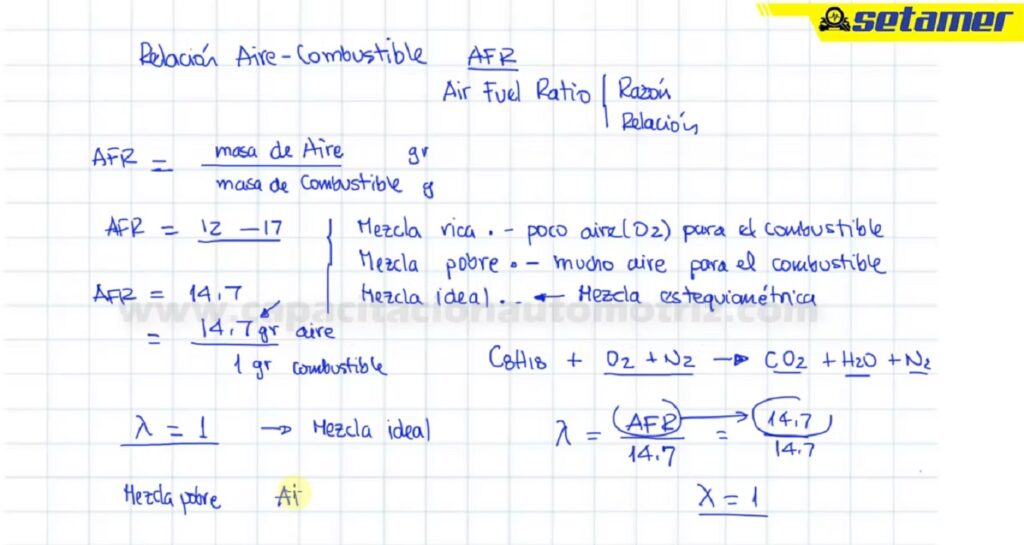 setamer
Relación Aire-Combustible AFR
Air Fuel Ratio Razón
Relación
AFR = masa de Aire gr
masa de Combustible g
AFR = 12 - 17 Mezcla rica .- poco aire(O2) para el combustible
Mezcla pobre .- mucho aire para el combustible
AFR = 14.7 Mezcla ideal .. ← Mezcla estequiométrica
www.capacitacionautomotriz.com
= 14.7 gr aire
1 gr combustible
C8H18 + O2 + N2 → CO2 + H2O + N2
λ = 1 → Mezcla ideal λ = AFR = 14.7
14.7 14.7
Mezcla pobre Ai λ = 1